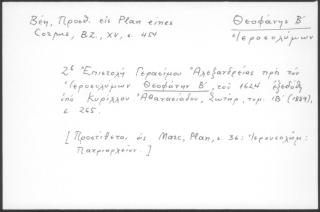 Βέη, Προσθ. εἰς Plan eines
Corpus, BZ., XV, σ. 454
Θεοφάνης Β΄
Ἱεροσολύμων
2α Ἐπιστολὴ Γερασίμου Ἀλεξανδρείας πρὸς τὸν
Ἱεροσολύμων Θεοφάνην Β΄, τοῦ 1624 ἐξεδόθη
ὑπὸ Κυρίλλου Ἀθανασιάδου, Σωτήρ, τομ. ΙΒ΄ (1889),
σ. 265.
[Προστίθεται εἰς Marc, Plan, σ. 36: Ἱερουσαλήμ:
Πατριαρχεῖον.]